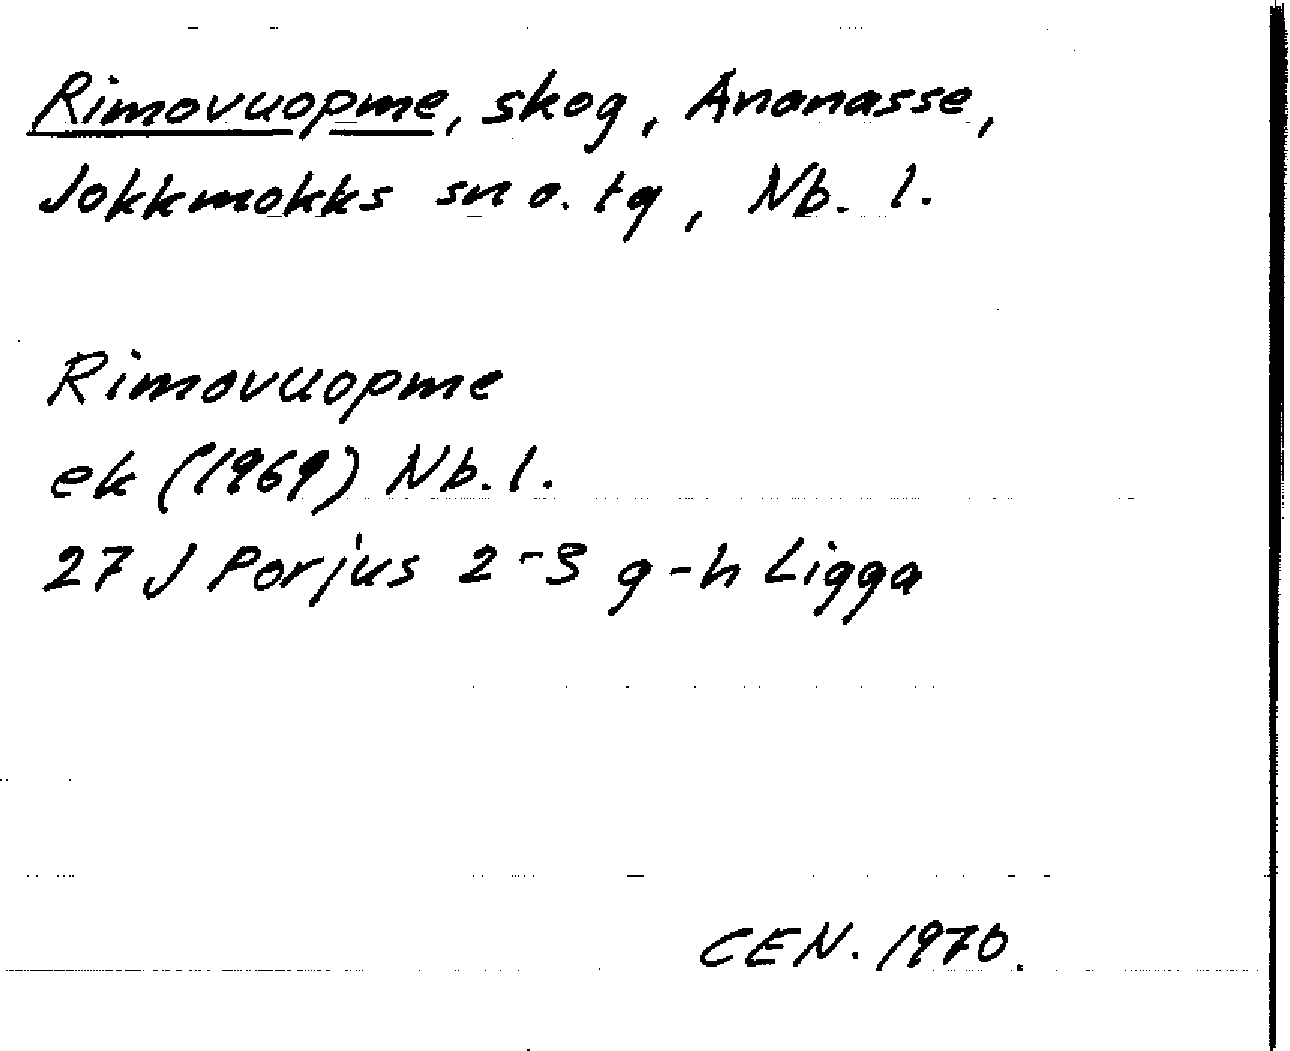 Rimovuopme, skog, Ananasse,
Jokkmokks sn o. tg, Nb. l.
Rimovuopme
ek (1969) Nb. l.
27 J Porjus 2-3 g-h Ligga
CEN. 1970.